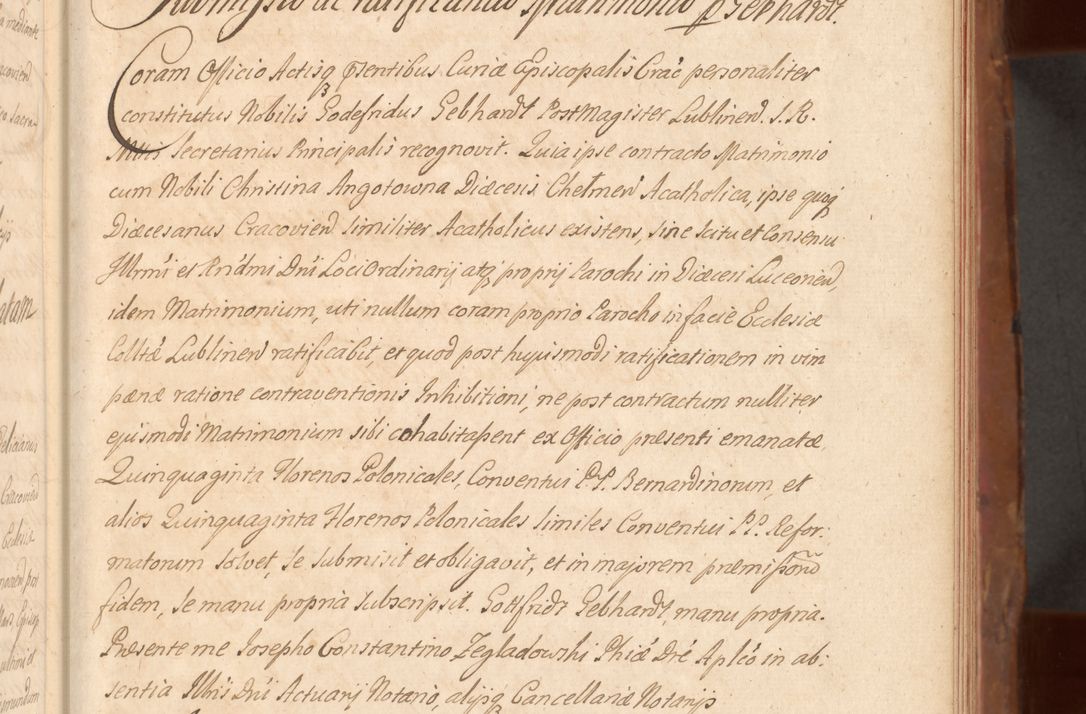 Submissio de ratificando Matrimonio p Gebhardt.
Coram Officio Actisq pñtibus Curiæ Episcopalis Crać personaliter
constitutus Nobilis Godefridus Gebhardt PostMagister Lublineñ. S. R.
Mttis Secretarius Principalis recognovit. Quia ipse contracto Matrimonio
cum Nobili Christina Angotowna Diæcesis Chełmeñ Acatholica, ipse quoq
Diæcesanus Cracovieñ similiter Acatholicus existens, sine scitu et Consensu
Illrmi et Rndmi Dni Loci Ordinarij atq proprij Parochi in Diæcesi Luceorieñ,
idem Matrimonium, uti nullum coram proprio Parocho in facie Ecclesiæ
Colltæ Lublineñ ratificabit, et quod post hujusmodi ratificationem in vim
pænæ ratione contraventionis Inhibitioni, ne post contractum nulliter
ejusmodi Matrimonium sibi cohabitassent ex Officio præsenti emanatæ
Quinquaginta Florenos Polonicales, Conventui P.P. Bernardinorum, et
alios Quinquaginta Florenos Polonicales similes Conventui P.P. Refor:
matorum solvet, se submisit et obligavit, et in majorem præmissorũ
fidem, se manu propria subscripsit. Gottfridt Gebhardt, manu propria.
Præsente me Josepho Constantino Zegladowski Phiæ Dré Aplcó in ab:
sentia Illris Dni Actuarij Notario, alijsq Cancellariæ Notarijs